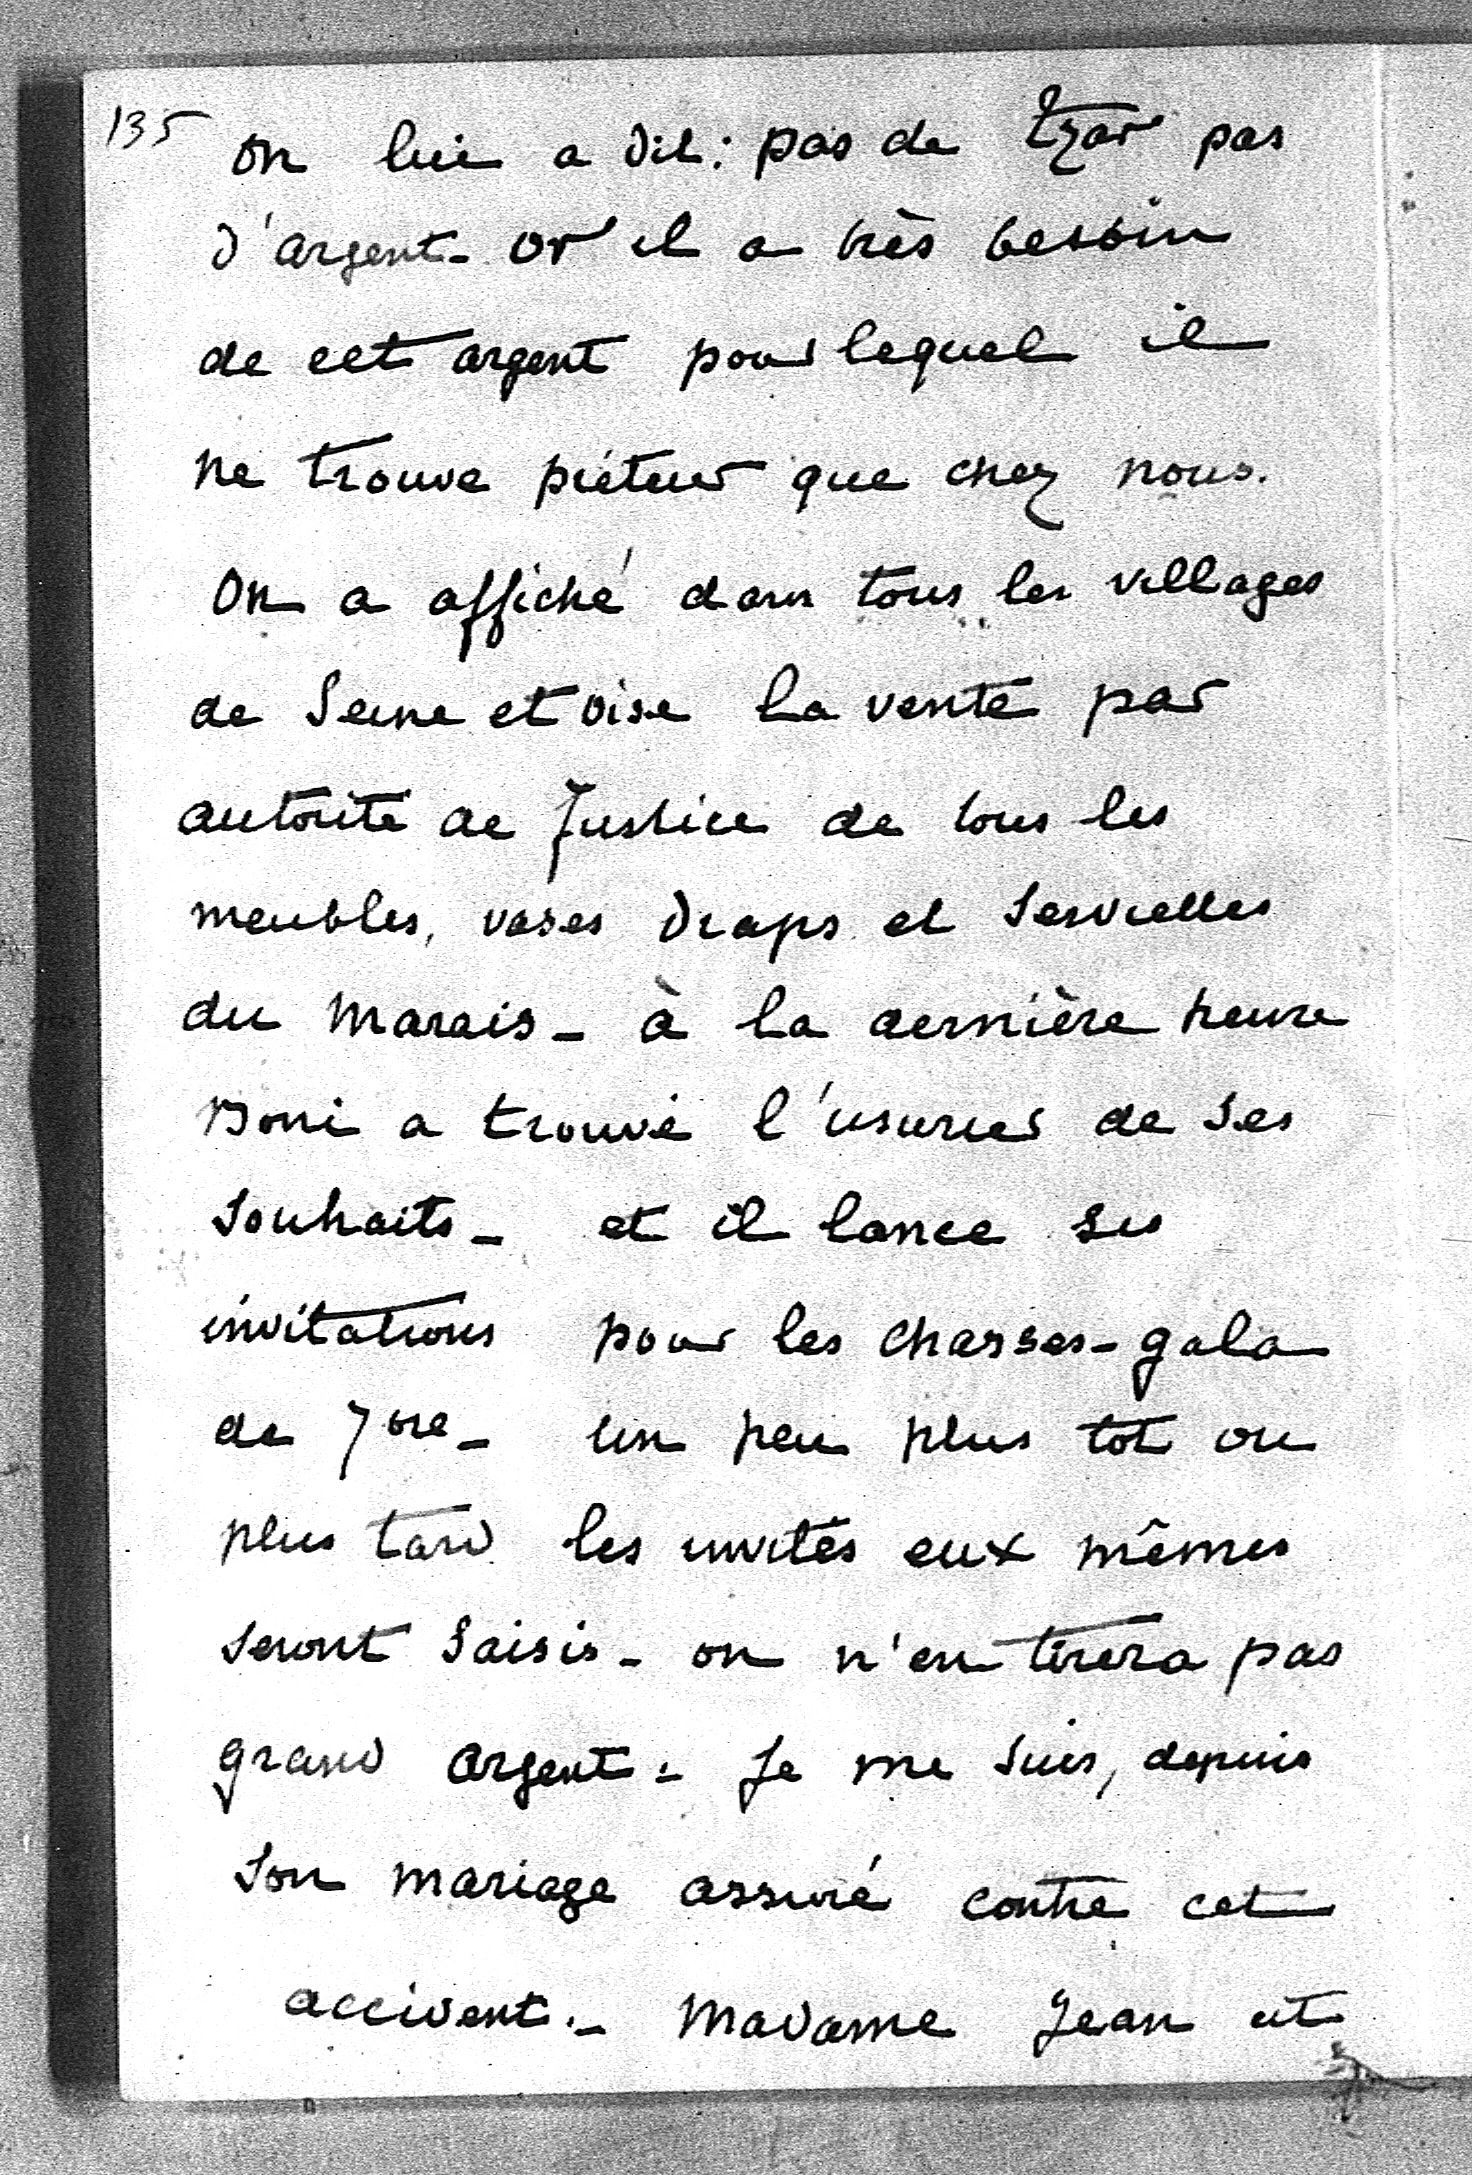 135
on lui a dit : pas de tzar pas
d'argent - or il a très besoin
de cet argent pour lequel il
ne trouve prêteur que chez nous.
On a affiché dans tous les villages
de Seine et Oise la vente par
autorité de Justice de tous les
meubles, vases draps et serviettes
du Marais - à la dernière heure
Boni a trouvé l'usurier de ses
souhaits - et il lance ses
invitations pour les chasses-gala
de 7bre - un peu plus tôt ou
plus tard les invités eux mêmes
seront saisis - on n'en tirera pas
grand argent - Je me suis, depuis
son mariage assuré contre cet
accident. - Madame Jean et